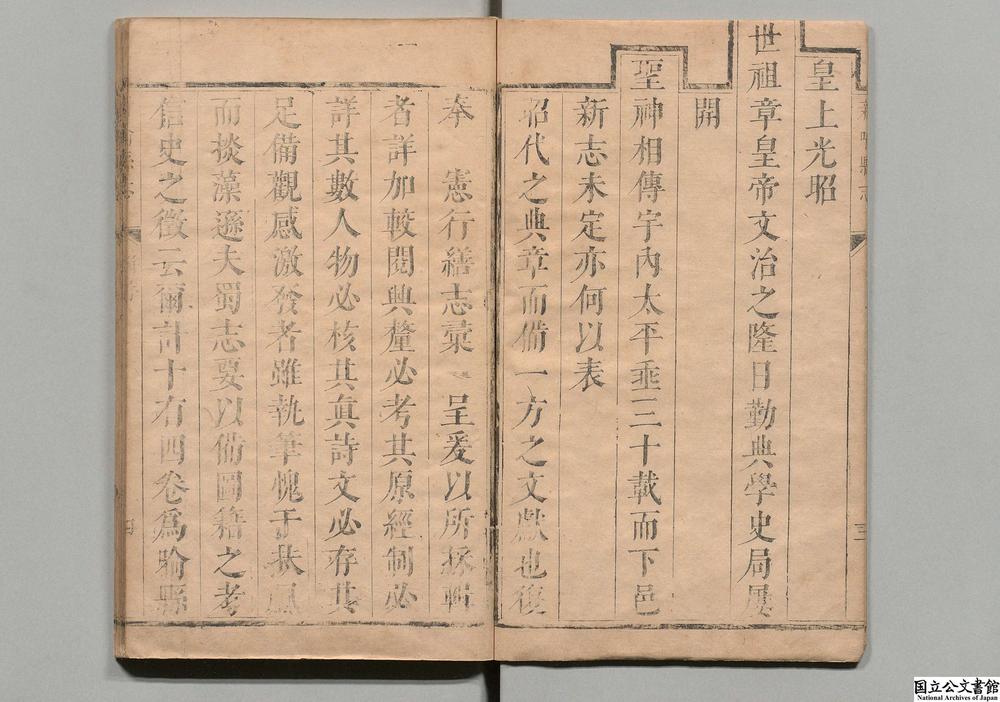 皇上光昭
世祖章皇帝文治之隆日勤典學史局屢
開
聖神相傳宇內太平垂三十載而下邑
新志未定亦何以表
昭代之典章而俻一方之文獻也復
奉 憲行繕志稾 呈爰以所採輯
者詳加較閱興釐必考其原經制必
詳其數人物必核其眞詩文必存其
足備觀感激發者雖執筆愧于扶風
而掞藻遜夫蜀志要以俻圖籍之考
信史之徵云爾計十有四卷爲喻縣
三
四
国立公文書館
National Archives of Japan